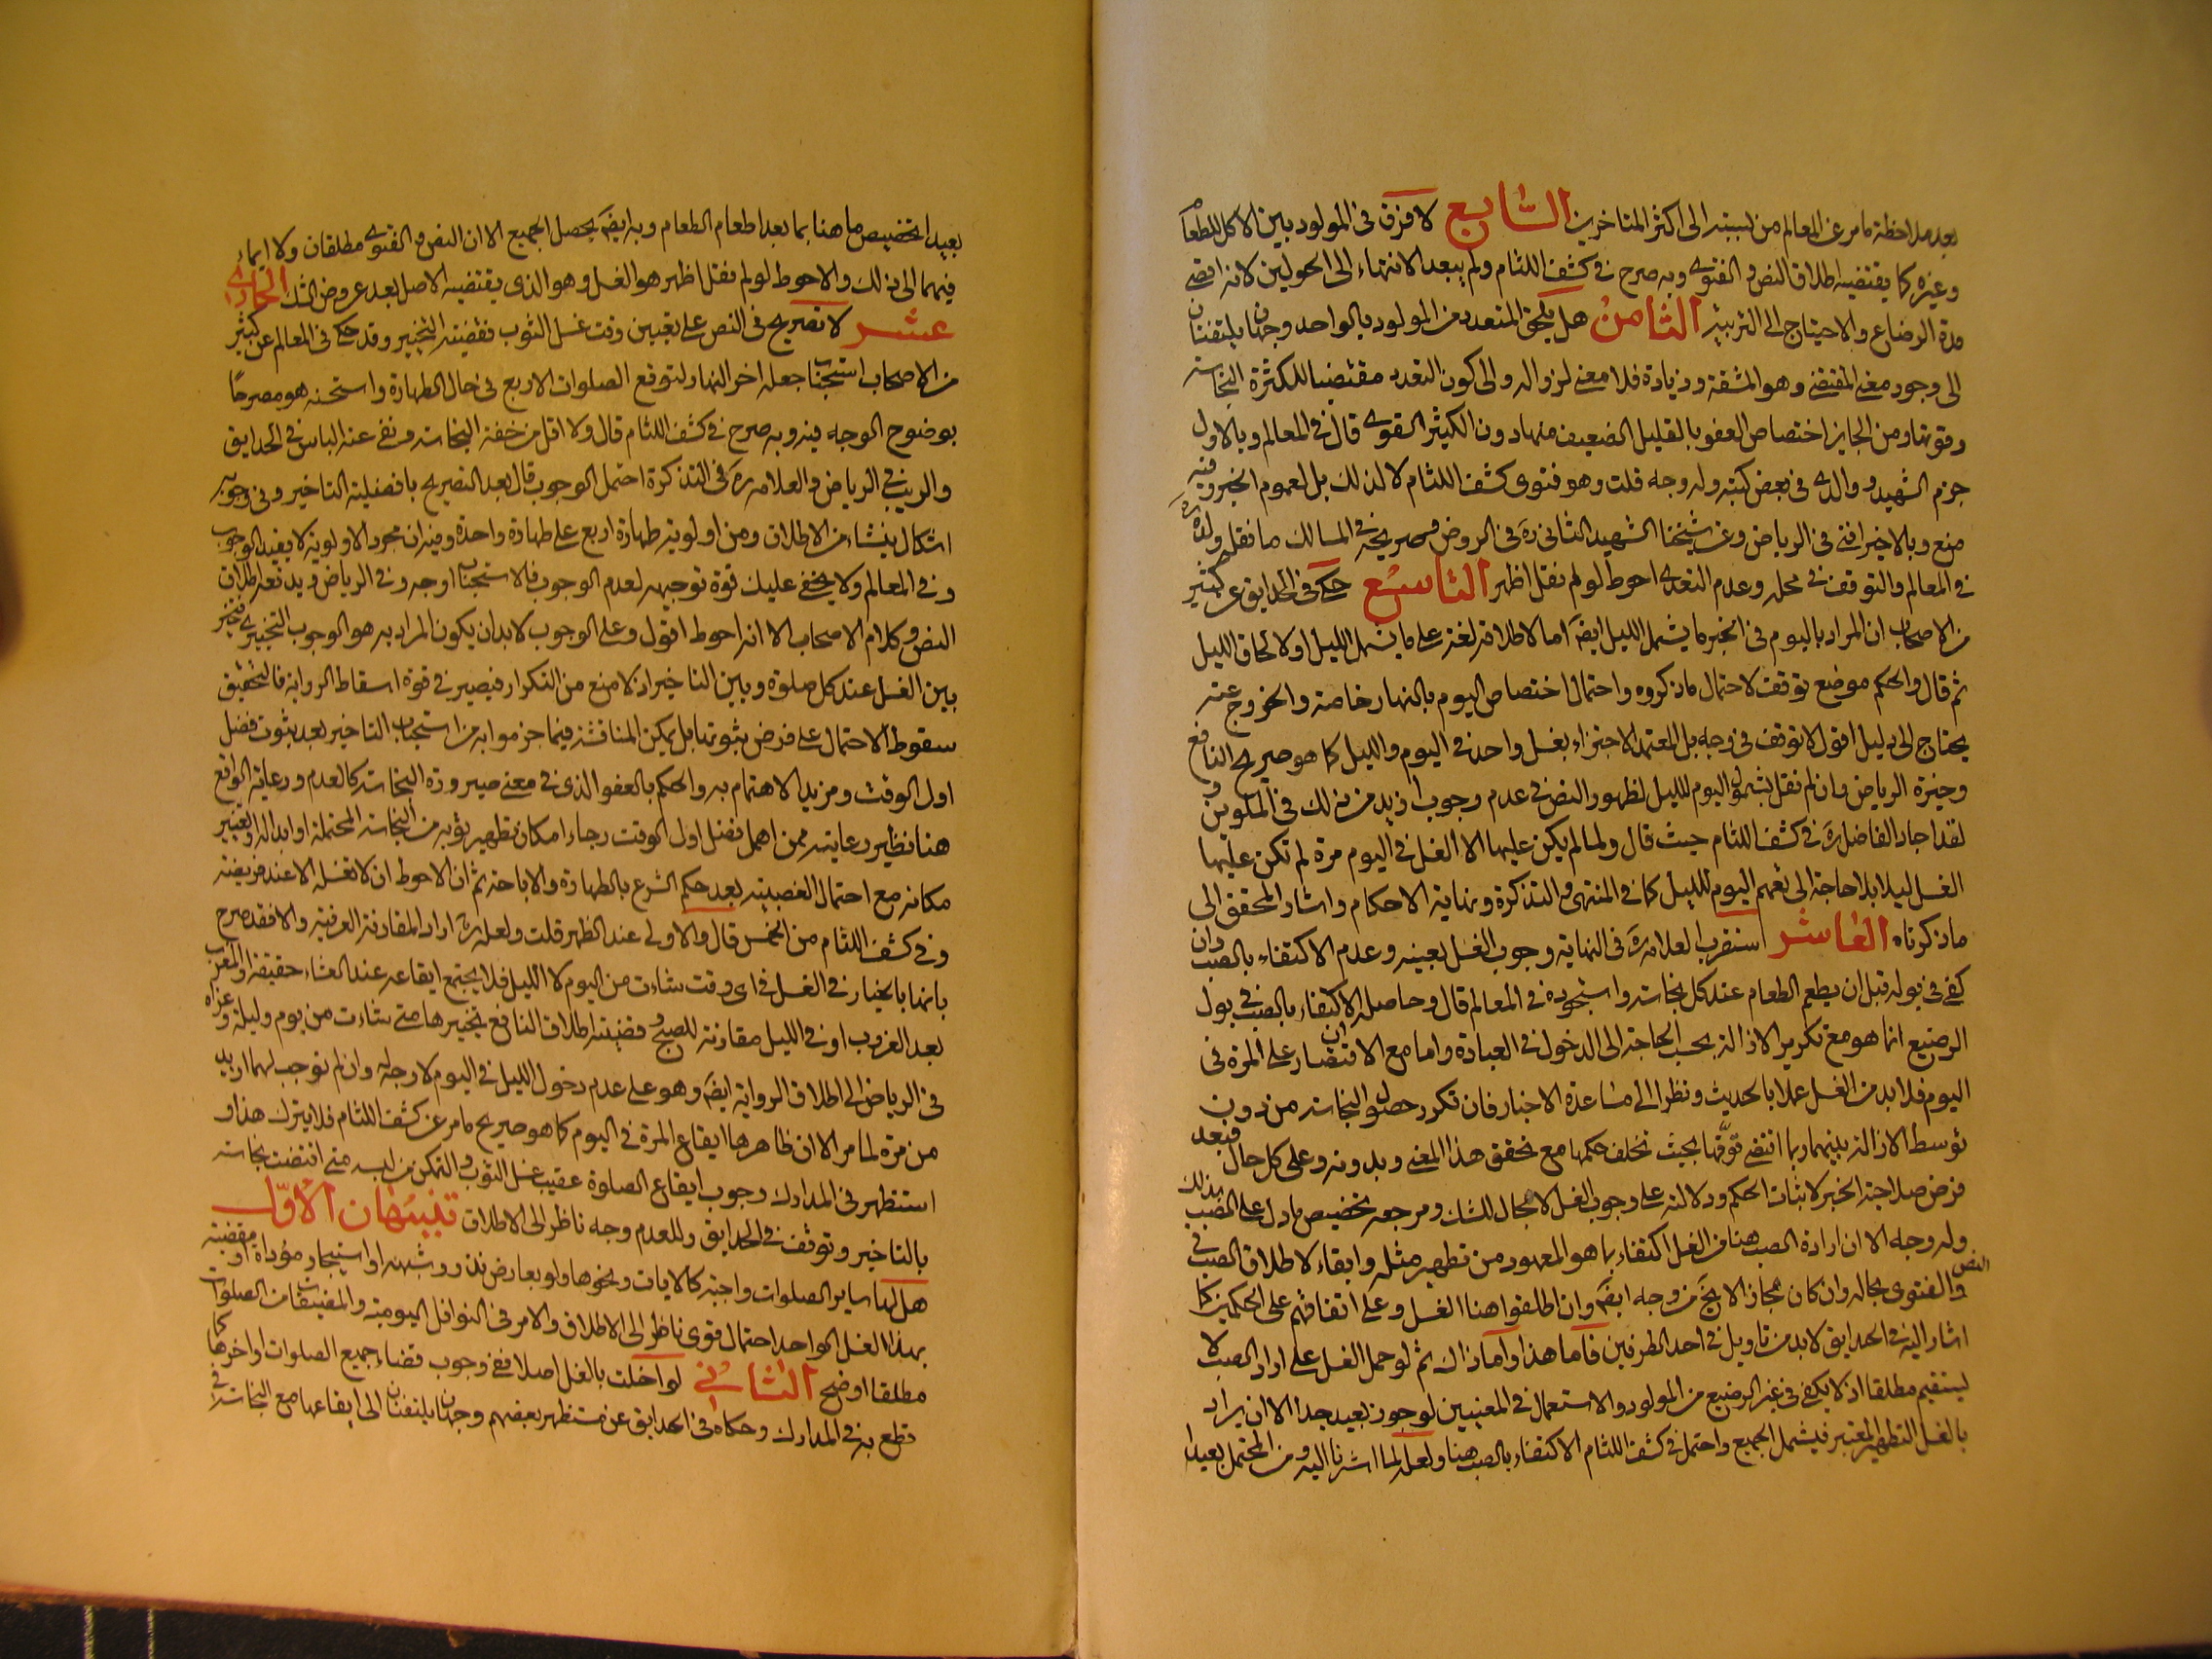 بعد ملاحظة ما مر عن المعالم من نسبته الى اكثر المتاخرين السابع لا فرق فى المولود بين الاكل للطعام
وغيره كما يقتضيه اطلاق النص و الفتوى وبه صرح فى كشف اللثام ولم يبعد الانتهاء الى الحولين لانه اقصى
مدة الرضاع والاحتياج الى التربية الثامن هل يلحق المتعدد من المولود بالواحد وجهان يلتفتان
الى وجود معنى المقتضى وهو المشقة وزيادة فلا معنى لزواله والى كون التعدد مقتضيا للكثرة النجاسة
وقوتها ومن الجايز اختصاص العفو بالقليل الضعيف منها دون الكثير القوى قال فى المعالم وبالاول
جزم الشهيد و والدى فى بعض كتبه وله وجه قلت وهو فتوى كشف اللثام لا لذلك بل لعموم الخبر وفيه
منع وبالاخير افتى فى الرياض وعن شيخنا الشهيد الثانى ره فى الروض وصريحه فى المسالك ما نقله ولده
فى المعالم والتوقف فى محله وعدم التعدى احوط لو لم نقل اظهر التاسع حكى فى الحدايق عن كثير
من الاصحاب ان المراد باليوم فى الخبر ما يشمل الليل ايضا اما لاطلاقه لغة على ما يشمل الليل او لالحاق الليل
ثم قال والحكم موضع توقف لاحتمال ما ذكروه واحتمال اختصاص اليوم بالنهار خاصة والخروج عنه
يحتاج الى دليل اقول لا توقف فى وجه بل المعتمد الاجتزاء بغسل واحد فى اليوم والليل كما هو صريح النافع
وخيرة الرياض وان لم نقل بشمول اليوم لليل لظهور النص فى عدم وجوب ازيد من ذلك فى المكونين و
لقد اجاد الفاضل ره فى كشف اللثام حيث قال ولما لم يكن عليها الا الغسل فى اليوم مرة لم تكن عليها
الغسل ليلا بلا حاجة الى تعميم اليوم لليل كما فى المنتهى و التذكرة ونهاية الاحكام واشار المحقق الى
ما ذكرناه العاشر استقرب العلامة ره فى النهاية وجوب الغسل بعينه وعدم الاكتفاء بالصب وان
كفى فى بوله قبل ان يطعم الطعام عند كل نجاسة واستجوده فى المعالم قال وحاصله ان الاكتفاء بالصب فى بول
الرضيع انما هو مع تكرير الازالة بحسب الحاجة الى الدخول فى العبادة واما مع الاقتصار على المرة فى
اليوم فلا بد من الغسل عملا بالحديث ونظرا الى مساعدة الاعتبار فان تكرر حصول النجاسة من دون
توسط الازالة بينهما ربما اقتضى قوتها بحيث تخلف حكمها مع تحقق هذا المعنى وبدونه وعلى كل حال فبعد
فرض صلاحية الخبر لاثبات الحكم ودلالته على وجوب الغسل لا مجال للشك ومرجعه تخصيص ما دل على الصب بذلك
وله وجه الا ان ارادة الصب هنا من الغسل اكتفاء بما هو المعهود من تطهير مثله وابقاء لاطلاق الصب فى
النص والفتوى بحاله وان كان مجازا لا يخ من وجه ايضا وان اطلقوا هنا الغسل وعلى اتفاقهم على الحكمين كما
اشار اليه فى الحدايق لا بد من تاويل فى احد الطرفين فاما هذا واما ذاك ثم لو حمل الغسل على ارادة الصب لا
يستقيم مطلقا اذ لا يكفى فى غير الرضيع من المولود والاستعمال فى المعنيين لو جوز بعيد جدا الا ان يراد
بالغسل التطهير المعتبر فيشمل الجميع واحتمل فى كشف اللثام الاكتفاء بالصب هنا ولعله لما اشرنا اليه ومن المحتمل بعيدا
بعيدا تخصيص ما هنا بما بعد اطعام الطعام وبه ايضا يحصل الجميع الا ان النص و الفتوى مطلقان ولا ايماء
فيهما الى ذلك والاحوط لو لم نقل اظهر هو الغسل وهو الذى يقتضيه الاصل بعد عروض الشك الحادى
عشر لا تصريح فى النص على تعيين وقت غسل الثوب فقضيته التخيير وقد حكى فى المعالم عن كثير
من الاصحاب استحباب جعله اخر النهار لتوقع الصلوات الاربع فى حال الطهارة واستحسنه هو مصرحا
بوضوح الوجه فيه وبه صرح فى كشف اللثام قال ولا اقل من خفة النجاسة ونفى عنه الباس فى الحدايق
والريب فى الرياض و العلامه ره فى التذكرة احتمل الوجوب قال بعد التصريح بافضلية التاخير وفى وجوبه
اشكال ينشاء من الاطلاق ومن اولوية طهارة اربع على طهارة واحدة وفيه ان مجرد الاولوية لا يفيد الوجوب
و فى المعالم ولا يخفى عليك قوة توجيهه لعدم الوجوب فالاستحباب اوجه وفى الرياض ويدفعه اطلاق
النص و كلام الاصحاب الا انه احوط اقول وعلى الوجوب لا بد ان يكون المراد به هو الوجوب التخييرى فتخير
بين الغسل عند كل صلوة وبين التاخير اذ لا منع من التكرار فيصير فى قوة اسقاط الرواية فالتحقيق
سقوط الاحتمال على فرض ثبوتها بل يمكن المناقشة فيما جزموا به من استحباب التاخير بعد ثبوت فضل
اول الوقت ومزيد الاهتمام به والحكم بالعفو الذى فى معنى صيرورة النجاسة كالعدم ورعاية الواقع
هنا نظير رعايته ممن اهمل فضل اول الوقت رجاء امكان تطهير ثوبه من النجاسة المحتملة او ابداله او تغيير
مكانه مع احتمال الغصبية بعد حكم الشرع بالطهارة والاباحة ثم ان الاحوط ان لا تغسله الا عند فريضة
و فى كشف اللثام من الخمس قال والاولى عند الظهر قلت ولعله ره اراد المقارنة العرفية والا فقد صرح
بانها بالخيار فى الغسل فى اى وقت شاءت من اليوم لا الليل فلا يجتمع ايقاعه عند العشاء حقيقة او المغرب
بعد الغروب او فى الليل مقارنة للصبح و قضيته اطلاق النافع تخييرها متى شاءت من يوم وليلة وعزاه
فى الرياض الى اطلاق الرواية ايضا وهو على عدم دخول الليل فى اليوم لا وجه له وان لم توجب لهما ازيد
من مرة لما مر الا ان ظاهرها ايقاع المرة فى اليوم كما هو صريح ما مر عن كشف اللثام فلا يترك هذا و
استظهر فى المدارك وجوب ايقاع الصلوة عقيب غسل الثوب و التمكن من لبسه متى اقتضت نجاسته
بالتاخير وتوقف فى الحدايق وللعدم وجه ناظر الى الاطلاق تنبيهان الاول
هل لها ساير الصلوات واجبة كالايات ونحوها ولو بعارض نذر وشبهه او استيجار مؤداة او مقضية
بهذا الغسل الواحد احتمال قوى ناظر الى الاطلاق والامر فى النوافل اليومية والمقضيات من الصلوات
مطلقا اوضح الثانى لو اخلت بالغسل اصلا ففى وجوب قضاء جميع الصلوات او اخرها كما
قطع به فى المدارك وحكاه فى الحدايق عن مستظهر بعضهم وجهان يلتفتان الى ايقاعها مع النجاسة فى